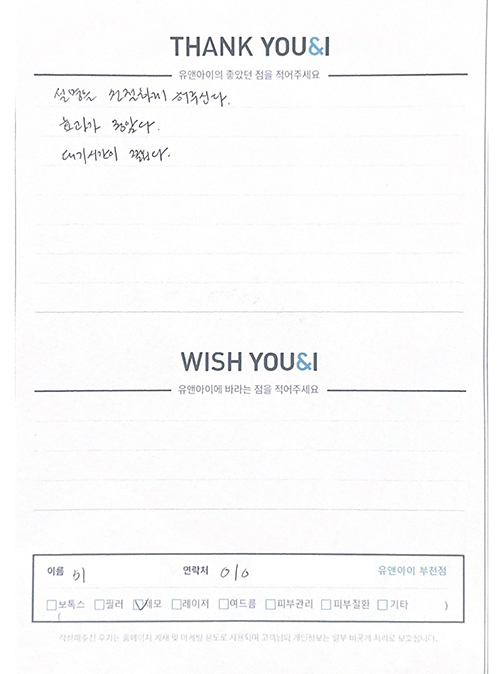 THANK YOU&I
유앤아이의 좋았던 점을 적어주세요
설명을 친절하게 해주신다.
효과가 좋았다.
대기시간이 짧다.
WISH YOU&I
유앤아이에 바라는 점을 적어주세요
이름 이 연락처 010 유앤아이 부천점
보톡스 필러 제모 레이저 여드름 피부관리 피부질환 기타 )
(
작성해주신 후기는 홈페이지 게재 및 마케팅 용도로 사용되며 고객님의 개인정보는 일부 비공개 처리로 보호됩니다.